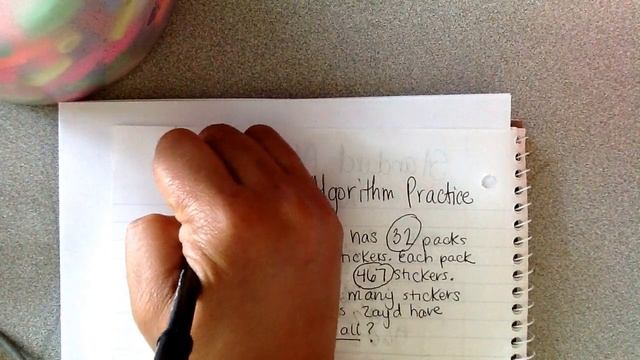 Algorithm Practice
has 32 packs
Each pack
467 stickers.
many stickers
Zayd have
all?